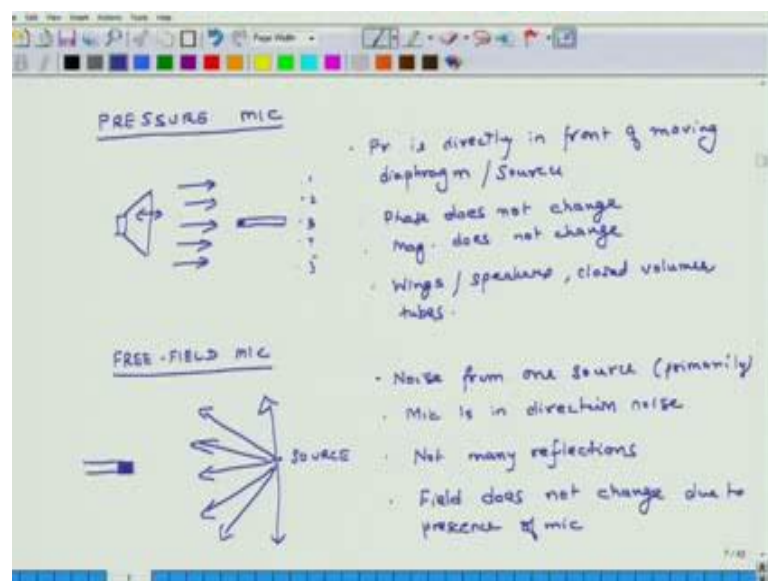 Edit View Insert Actions Tools Help
Page Width
PRESSURE MIC
· Pr is directly in front of moving
diaphragm / Source
Phase does not change
· Mag. does not change
· Wings / speakers, closed volumes
tubes.
· 1
· 2
· 3
· 4
· 5
FREE-FIELD MIC
SOURCE
· Noise from one source (primarily)
· Mic is in direction noise
· Not many reflections
· Field does not change due to
presence of mic